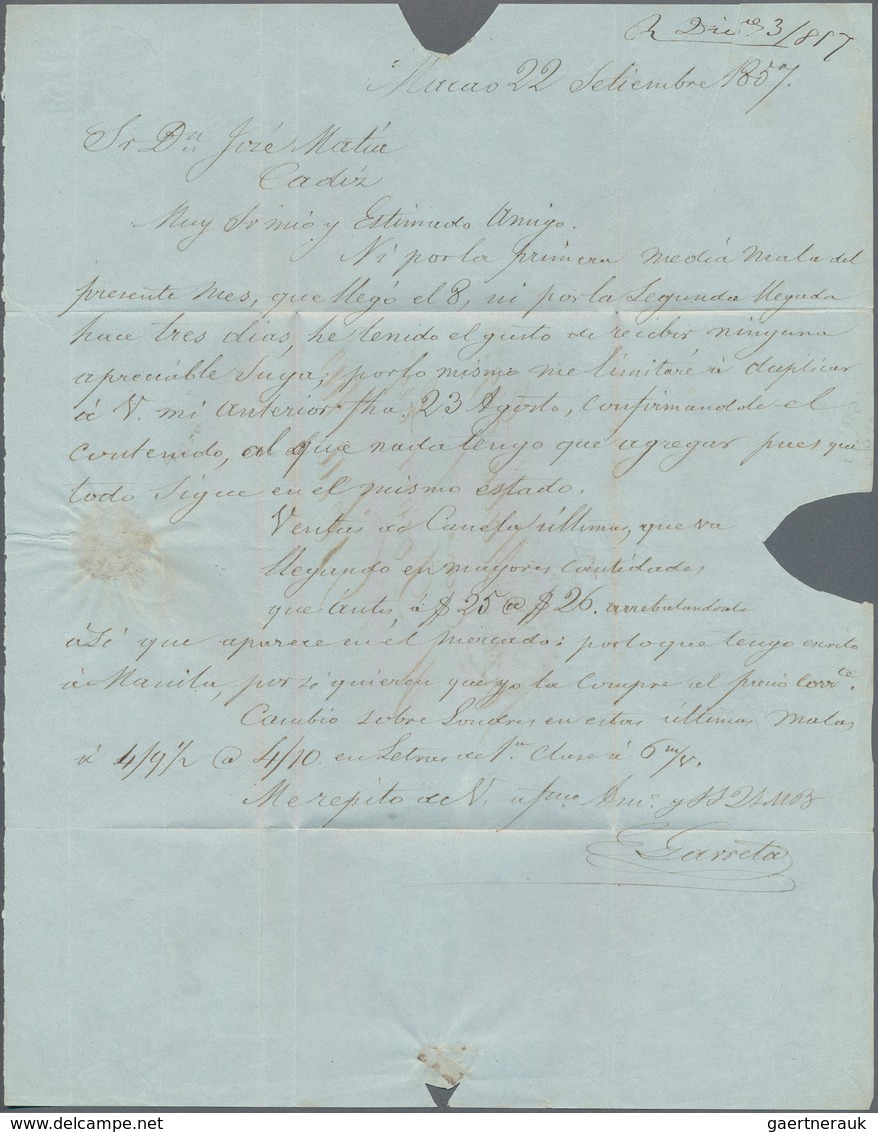 R Dice 3/857
Macao 22 Setiembre 1857.
Sr Dn José Matia
Cadiz
Muy Sr mio y Estimado Amigo.
Ni por la primera media mala del
presente mes, que llegó el 8, ni por la Segunda llegada
hace tres dias, he tenido el gusto de recibir ninguna
apreciable Suya; por lo mismo me limitaré á duplicar
á V. mi anterior fha. 23 Agosto, confirmandole el
contenido, al que nada tengo que agregar pues que
todo Sigue en el mismo estado.
Ventas de Canela últimas, que va
llegando en mayores cantidades
que ántes, á $ 25 @ $ 26. arrebatandose
la que aparece en el mercado: por lo que tengo escrito
á Manila, por si quieren que yo la compre al precio Corrte.
Cambio sobre Londres en estas últimas malas
á 4/9 1/2 @ 4/10 en Letras de 1a Clase á 6 m/v.
Me repito de V. Amo. y SS
Garreta
gaertnerauk